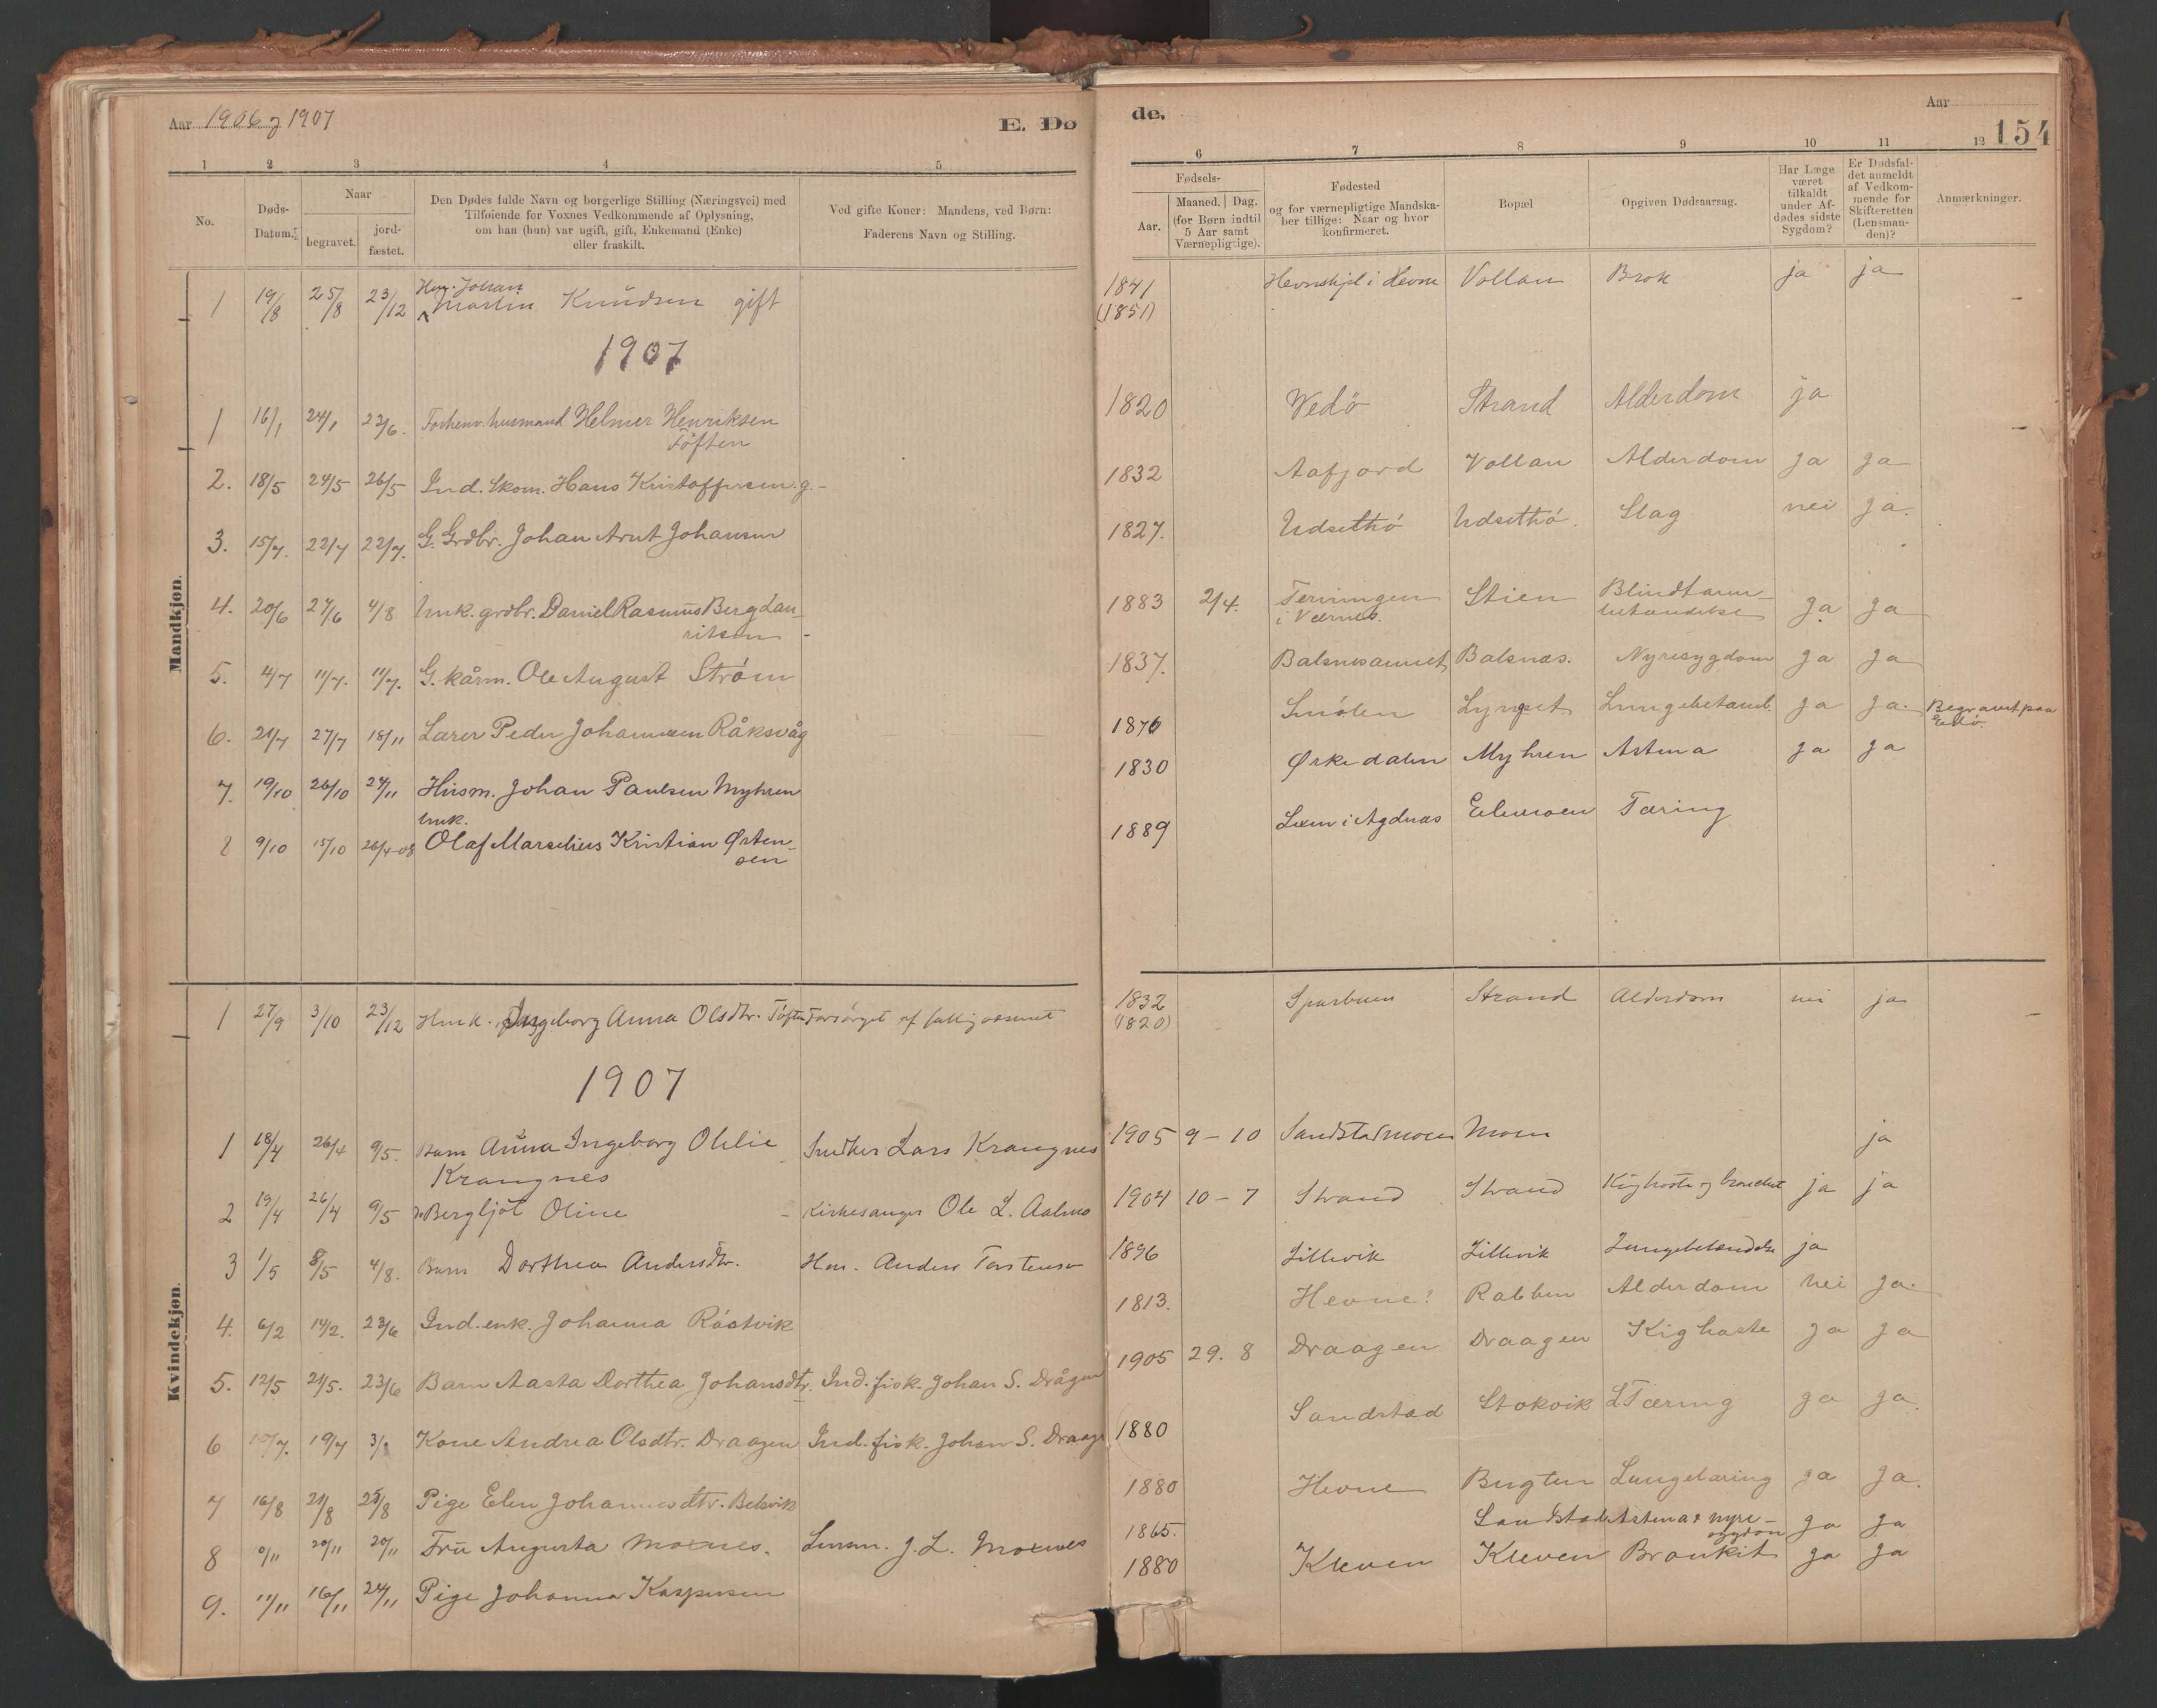 Aar 1906 og 1907
E. Dø
de.
Aar
154
1 2 3 4 5 6 7 8 9 10 11 12
No.
Døds-
Datum.
Naar
begravet.
jord-
fæstet.
Den Dødes fulde Navn og borgerlige Stilling (Næringsvei) med
Tilføiende for Voxnes Vedkommende af Oplysning,
om han (hun) var ugift, gift, Enkemand (Enke)
eller fraskilt.
Ved gifte Koner: Mandens, ved Børn:
Faderens Navn og Stilling.
Fødsels-
Aar.
Maaned. Dag.
(for Børn indtil
5 Aar samt
Værnepligtige).
Fødested
og for værnepligtige Mandska-
ber tillige: Naar og hvor
konfirmeret.
Bopæl
Opgiven Dødsaarsag.
Har Læge
været
tilkaldt
under Af-
dødes sidste
Sygdom?
Er Dødsfal-
det anmeldt
af Vedkom-
mende for
Skifteretten
(Lensman-
den)?
Anmærkninger.
Mandkjøn.
Johan
1 19/8 25/8 23/12 Martin Knudsen gift 1841 Hevne Vollan Brok ja ja
(1851)
1907
1 16/1 24/1 23/6. Forhenv. husmand Helmer Henriksen 1820 Vedø Strand Alderdom ja
Tøften
2. 18/5 24/5 26/5 Ind. Skom. Hans Kristoffersen. g. 1832 Aafjord Vollan Alderdom ja ja
3. 15/7. 22/7 22/7. G. Grdbr. Johan Arnt Johansen 1827. Udsethø Udsethø. Slag nei ja.
4. 20/6 27/6 4/8 Unk. grdbr. Daniel Rasmus Berg Lau- 1883 2/4. Terningen Stien Blindtarm- ja ja
ritsen i Værnes. betændelse
5. 4/7 11/7. 11/7. G. kårm. Ole August Strøm 1837. Balsnesaunet Balsnes. Nyresygdom ja ja
6. 21/7 27/7 18/11 Lærer Peder Johannesen Råksvåg 1876 Smølen Lungebetænd. ja ja. Begravet paa
Edø.
7. 19/10 26/10 24/11 Husm. Johan Paulsen Myhren 1830 Ørkedalen Myhren Astma ja ja
Unk.
8 9/10 15/10 26/4-08 Olaf Marselius Kristian Østen- 1889 i Agdnæs Tæring
sen
Kvindekjøn.
1 27/9 3/10 23/12 Ingeborg Anna Olsdtr. Forsørget af fattigvæsenet 1832 Sparbuen Strand Alderdom nei ja
(1820)
1907
1 18/4 26/4 9/5. Barn Anna Ingeborg Otelie Lars Krangnes 1905 9-10 Sandstadmoen Moen ja
Krangnes
2 19/4 26/4 9/5 Bergljot Oline Kirkesanger Ole L. Aalmo 1904 10-7 Strand Strand Kighoste og bronchit ja ja
3 1/5 8/5 4/8. Barn Dorthea Andersdtr. Anders Torstensen 1896 Lillevik Lillevik Lungebetændelse ja
4. 6/2 14/2. 23/6 Ind. enk. Johanna Røstvik 1813. Hevne? Rabben Alderdom nei ja.
5. 12/5 21/5. 23/6 Barn Aasta Dorthea Johansdtr. Ind. fisk. Johan S. Drågen 1905 29. 8 Draagen Draagen Kighoste ja ja
6 19/7 Kone Andrea Olsdtr. Draagen Ind. fisk. Johan S. Draage 1880 Sandstad Stokvik L Tæring ja ja.
7 16/8 21/8 25/8 Pige Elen Johannesdtr. Belsvik 1880 Hevne Bugten Lungetæring ja ja.
8 20/11 20/11 Fru Augusta Moxnes. Lensm. J. L. Moxnes 1865. Sandstad Astma & nyre- ja ja
sygdom
9. 11/11 16/11 24/11 Pige Johanna Kaspersen 1880 Kleven Kleven Bronkit ja ja